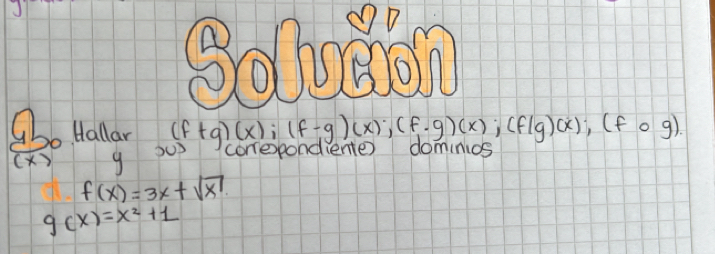 Solución
1. Hallar (f+g)(x); (f-g)(x); (f.g)(x); (f/g)(x); (f o g).
(x) y sus correspondientes dominios
d. f(x)=3x+√x.
g(x)=x²+1